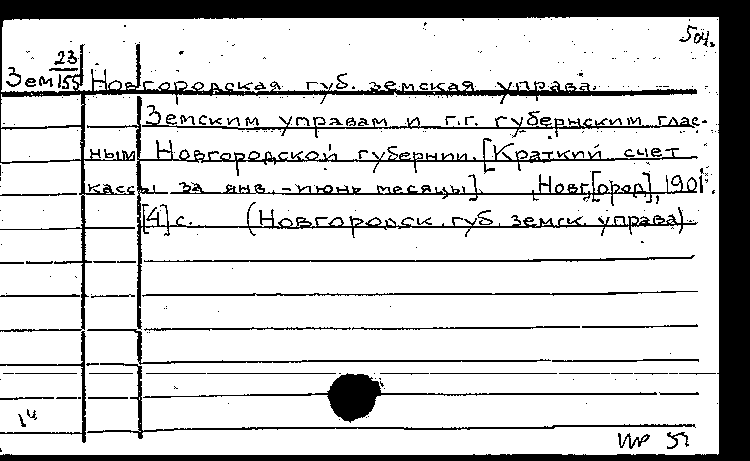 504.
23
Зем 155 Новгородская губ. земская управа.
Земским управам и г.г. губернским глас-
ным Новгородской губернии. [Краткий счет
кассы за янв.-июнь месяцы]. Новг.[ород], 1901.
[4] с. (Новгородск. губ. земск. управа).
14